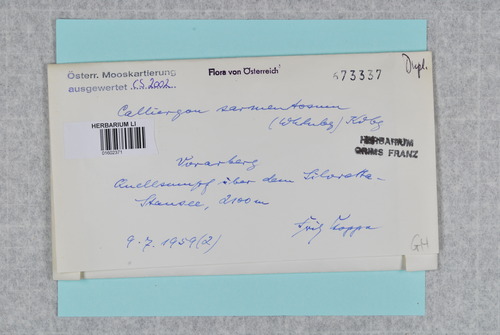 Österr. Mooskartierung
ausgewertet CS 2002
Flora von Österreich
673337
Dupl.
Calliergon sarmentosum
(Whlnbg) Kdbg
HERBARIUM LI
01602371
HERBARIUM
GRIMS FRANZ
Vorarlberg
Quellsumpf über dem Silvretta-
Stausee, 2100m
9.7.1959(2) Fritz Koppe
GH